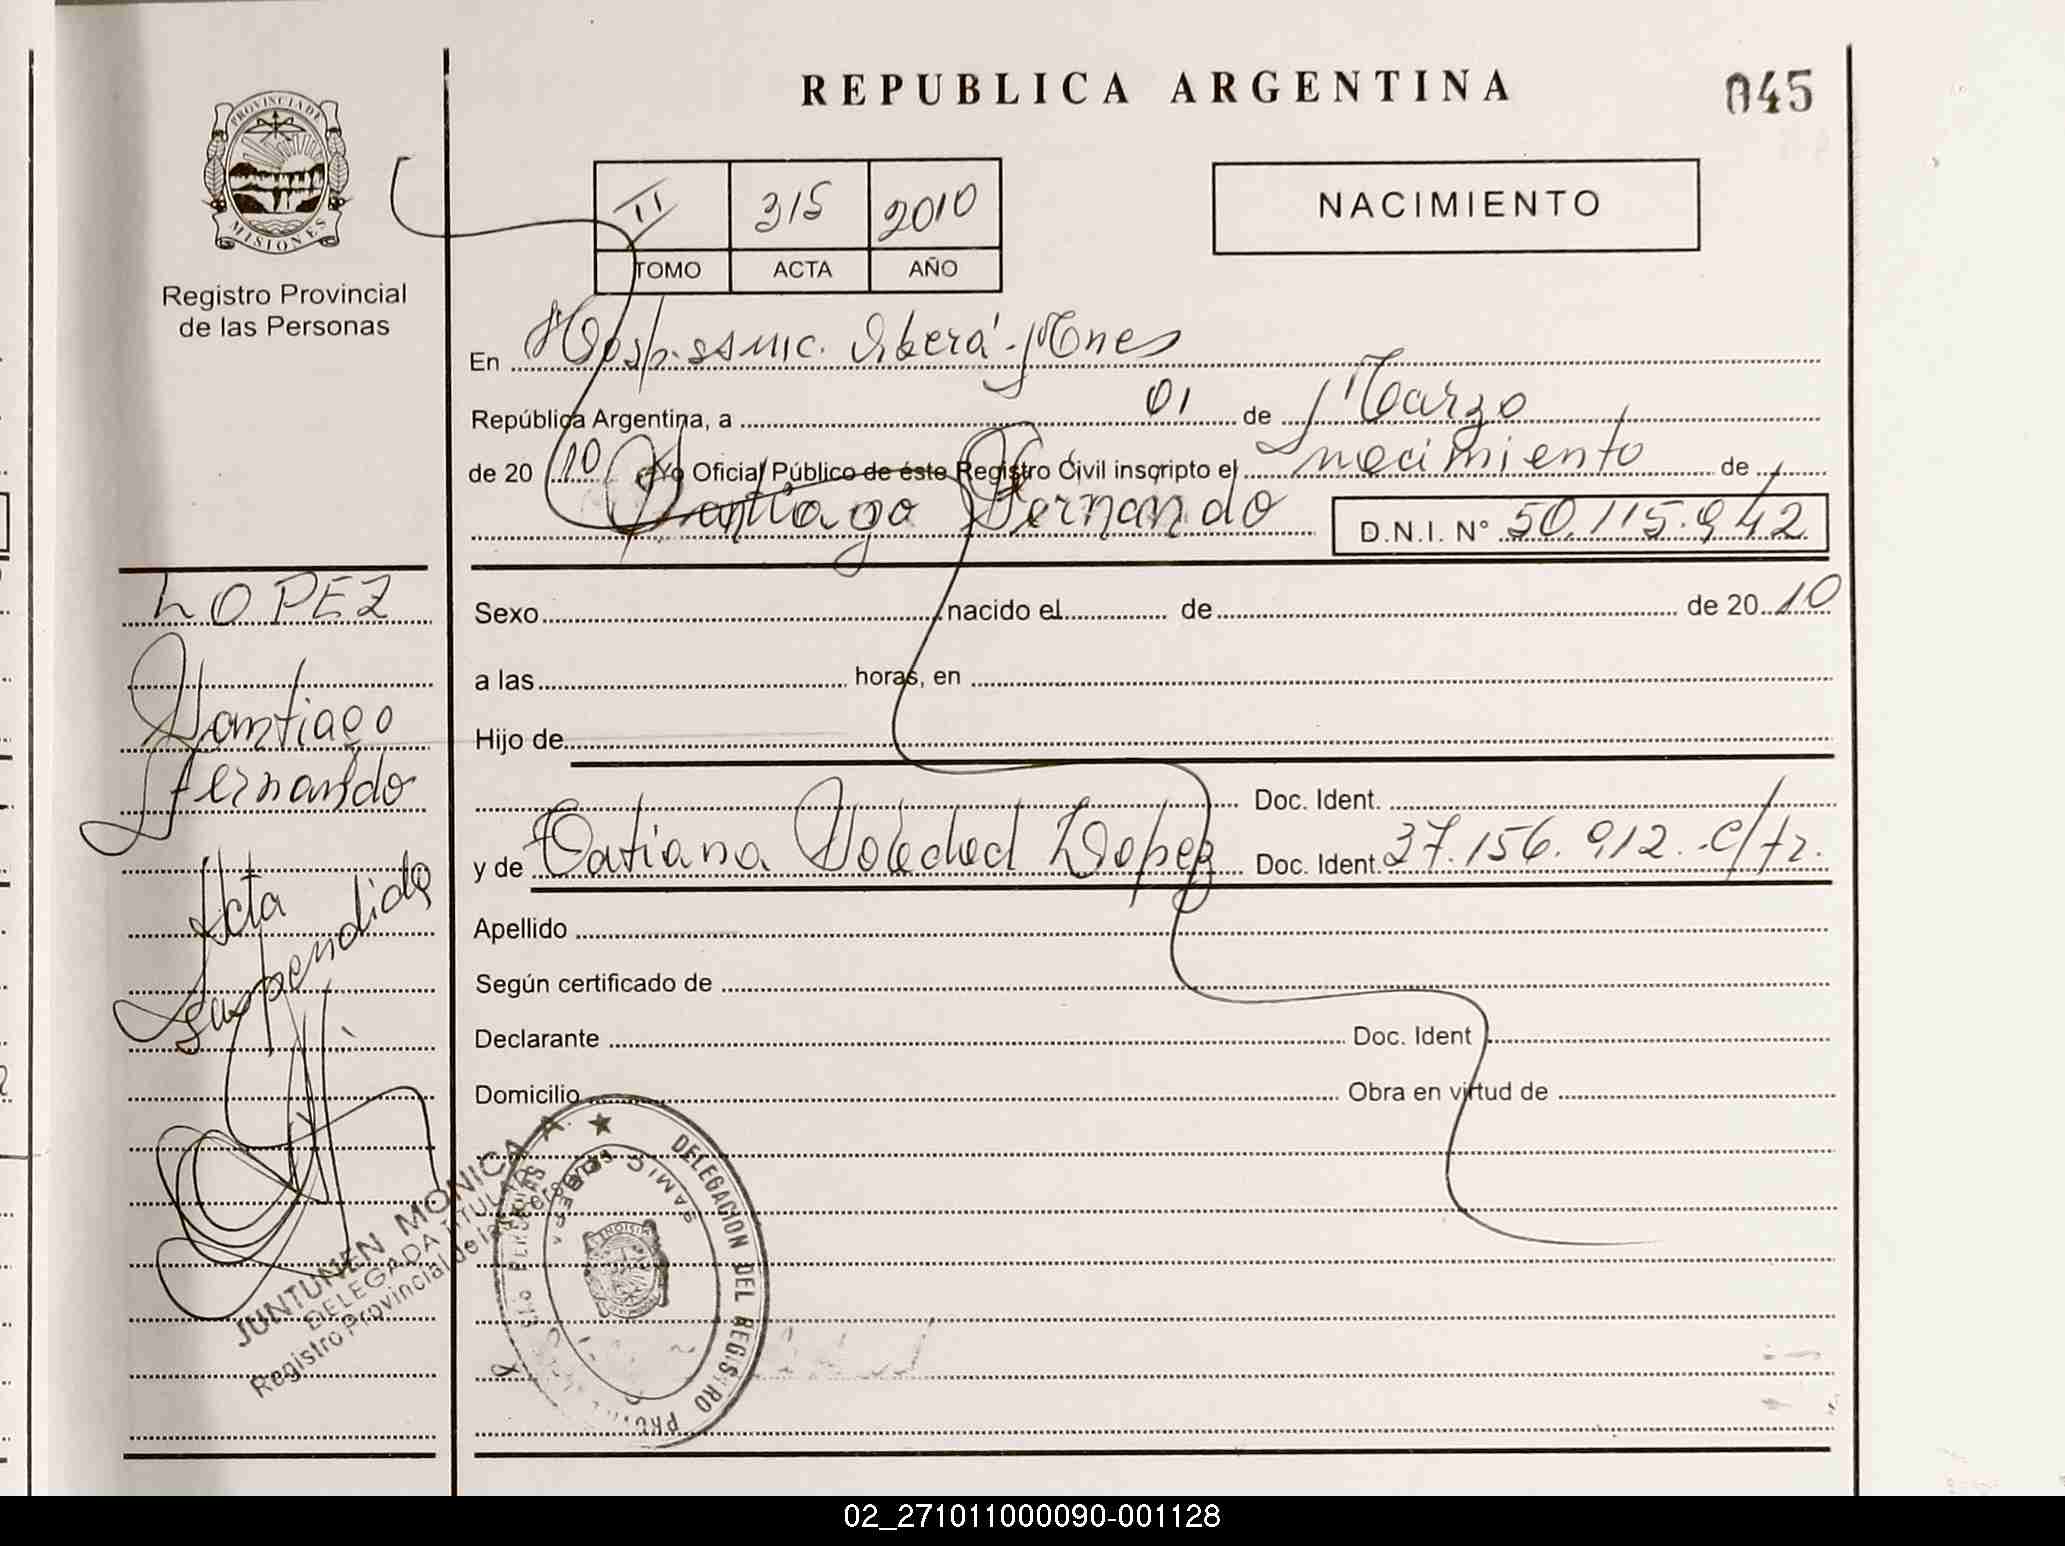 REPUBLICA ARGENTINA
045
PROVINCIA DE
MISIONES
Registro Provincial
de las Personas
II 315 2010
TOMO ACTA AÑO
NACIMIENTO
En Hosp. SAMIC.
República Argentina, a 01 de Marzo
de 20 10 Yo Oficial Público de éste Registro Civil inscripto el nacimiento de
Santiago Fernando D.N.I. N° 50.115.942
LOPEZ
Santiago
Fernando
Acta
suspendida
Sexo nacido el de de 20 10
a las horas, en
Hijo de
Doc. Ident.
y de Tatiana Soledad Lopez Doc. Ident. 37.156.912.-C/tr.
Apellido
Según certificado de
Declarante Doc. Ident
Domicilio Obra en virtud de
JUNTUNEN MONICA A.
DELEGADA TITULAR
Registro Provincial de las Personas
DELEGACION DEL REGISTRO
SAMIC
02_271011000090-001128